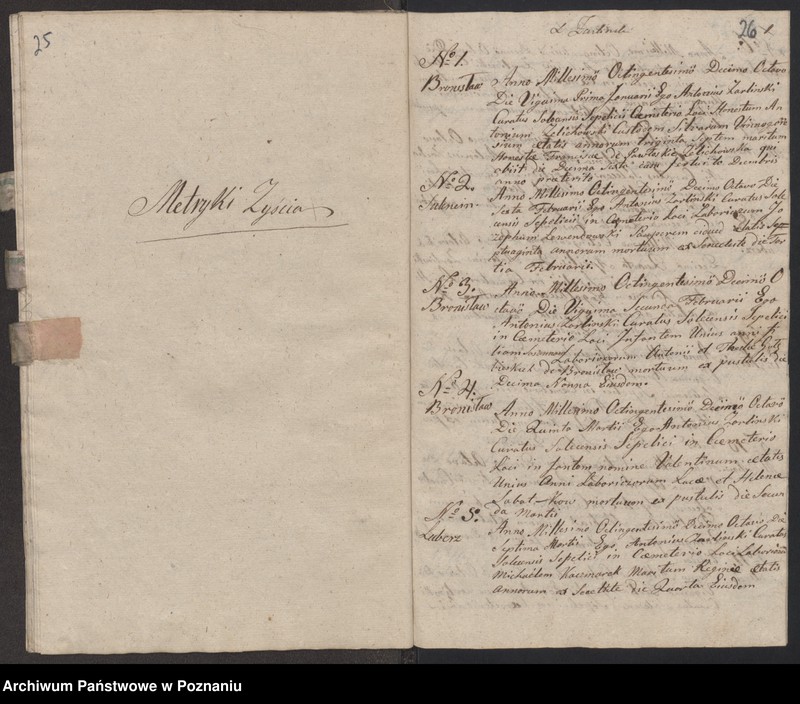 25
Metryki Zyścia
26
A Zarlinski
No 1.
Bronisław
Anno Millesimo Octingentesimo Decimo Octavo
Die Vigesima Prima Januarii Ego Antonius Zarlinski
Curatus Solecensis Sepelivi in Cœmeterio Loci Honestum An
tonium Zelichowski Custodem Silvarum
etatis annorum triginta Septem maritum
Honestæ Franciscæ de
obiit die Decima Sexta
anno præterito
No 2.
Anno Millesimo Octingentesimo Decimo Octavo Die
Sexta Februarii Ego Antonius Zarlinski Curatus Sole
censis Sepelivi in Cœmeterio Loci Laboriosum Jo
zephum Lewandowski Pauperem Etatis Sep
tuaginta annorum mortuum ex Senectute die Ter
tia Februarii.
No 3.
Bronisław
Anno Millesimo Octingentesimo Decimo O
ctavo Die Vigesima Secunda Februarii Ego
Antonius Zarlinski Curatus Solecensis Sepelivi
in Cœmeterio Loci Infantem Unius anni fi
liam Laboriosorum Antonii et
de Bronisław mortuum ex pustulis die
Decima Nonna Eiusdem.
No 4.
Bronisław
Anno Millesimo Octingentesimo Decimo Octavo
Die Quinta Martii Ego Antonius Zarlinski
Curatus Solecensis Sepelivi in Cœmeterio
Loci infantem nomine Valentinum etatis
Unius Anni Laboriosorum Lucæ et Helenæ
mortuum ex pustulis die Secun
da Martii
No 5.
Anno Millesimo Octingentesimo Decimo Octavo Die
Septima Martii Ego Antonius Zarlinski Curatus
Solecensis Sepelivi in Cœmeterio Loci Laboriosum
Michaelem Kaczmarek Maritum Reginæ etatis
annorum die Quarta Eiusdem
Archiwum Państwowe w Poznaniu